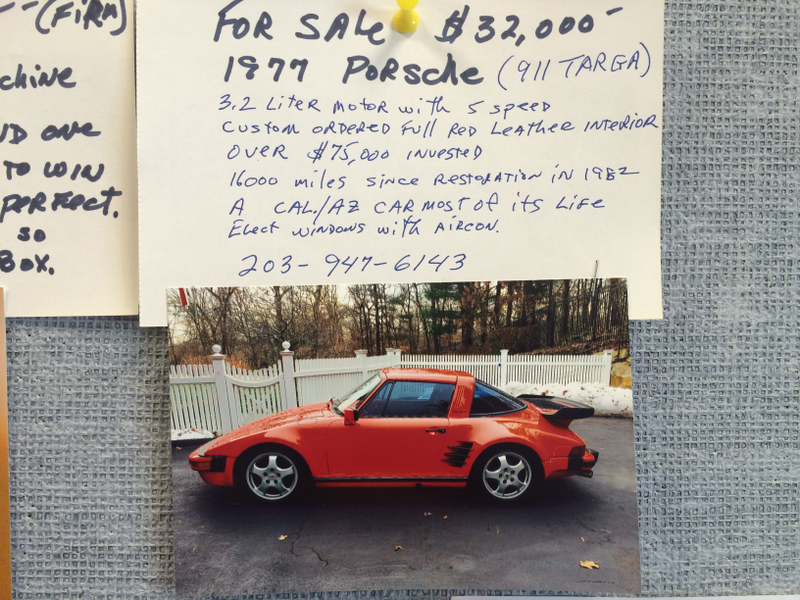 -- (FIRM)
chine
ND ONE
TO WIN
PERFECT.
SO
BOX.
FOR SALE $32,000-
1977 PORSCHE (911 TARGA)
3.2 LITER MOTOR with 5 SPEED
CUSTOM ORDERED FULL RED LEATHER INTERIOR
OVER $75,000 INVESTED
16000 miles SINCE RESTORATION IN 1982
A CAL./AZ CAR MOST OF ITS LIFE
ELECT WINDOWS with AIRCON.
203-947-6143